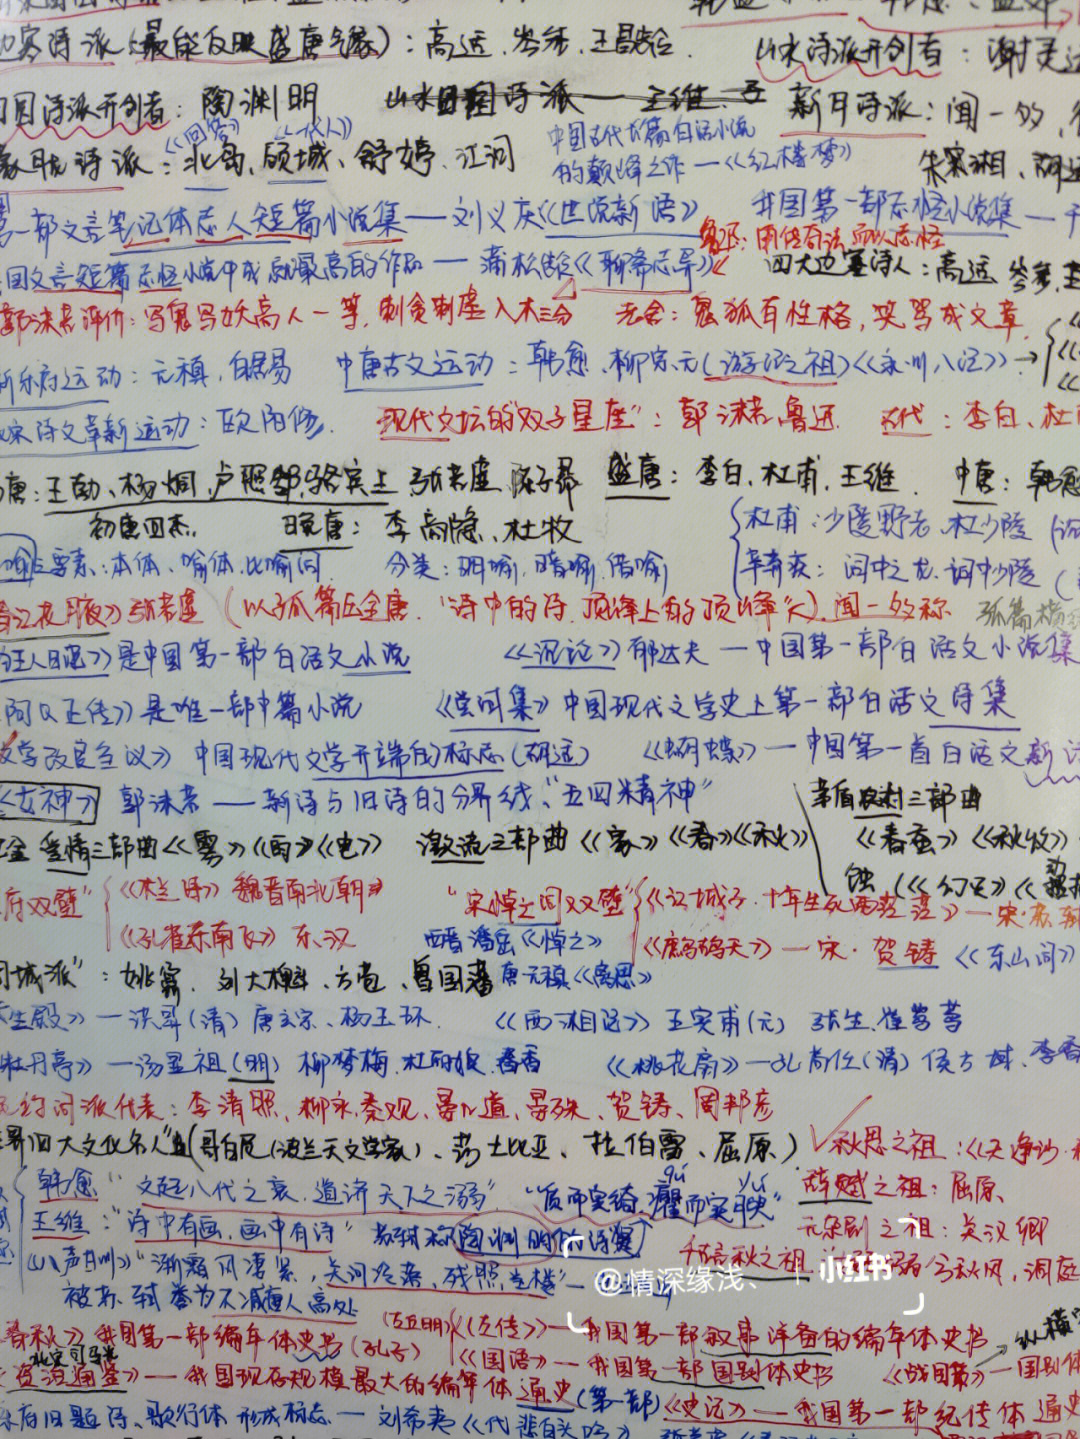 边塞诗派(最能反映盛唐气象)：高适、岑参、王昌龄. 山水诗派开创者：谢灵运
田园诗派开创者：陶渊明 山水田园诗派——王维、孟 新月诗派：闻一多、
《回答》 《一代人》 中国古代长篇白话小说
朦胧诗派：北岛、顾城、舒婷、江河 的巅峰之作—《红楼梦》 朱湘、
一部文言笔记体志人短篇小说集——刘义庆《世说新语》 我国第一部志怪小说集—干
鲁迅：用传奇法而以志怪
国文言短篇志怪小说中成就最高的作品—蒲松龄《聊斋志异》 四大边塞诗人：高适 岑参、王
郭沫若评价：写鬼写妖高人一等，刺贪刺虐入木三分 老舍：鬼狐有性格，笑骂成文章.
新乐府运动：元稹、白居易 中唐古文运动：韩愈、柳宗元(游记之祖)《永州八记》→
宋诗文革新运动：欧阳修. 现代文坛的“双子星座”：郭沫若、鲁迅. 古代：李白、杜
唐：王勃、杨炯、卢照邻、骆宾王 张若虚、陈子昂 盛唐：李白、杜甫、王维. 中唐：韩愈
初唐四杰. 晚唐：李商隐、杜牧 杜甫：少陵野老、杜少陵
喻三要素：本体、喻体、比喻词 分类：明喻、暗喻、借喻 辛弃疾：词中之龙、词中少陵
江花月夜》张若虚(以孤篇压全唐.“诗中的诗,顶峰上的顶峰”).闻一多称 孤篇横
狂人日记》是中国第一部白话文小说 《沉沦》郁达夫—中国第一部白话文小说集
阿Q正传》是唯一部中篇小说 《尝试集》中国现代文学史上第一部白话文诗集
文学改良刍议》中国现代文学开端的标志(胡适) 《蝴蝶》—中国第一首白话文新诗
《女神》郭沫若——新诗与旧诗的分界线、“五四精神” 茅盾农村三部曲
金 爱情三部曲《雾》《雨》《电》 激流三部曲《家》《春》《秋》 《春蚕》《秋收》
蚀(《幻灭》《动摇
府双璧” 《木兰诗》魏晋南北朝 “宋悼亡词双璧” 《江城子·十年生死两茫茫》—宋·苏轼
《孔雀东南飞》东汉 西晋潘岳《悼亡》 《鹧鸪天》—宋·贺铸《东山词》
桐城派”：姚鼐、刘大櫆、方苞、曾国藩 唐元稹《离思》
生殿》—洪昇(清)唐玄宗、杨玉环. 《西湘记》王实甫(元) 张生、崔莺莺
牡丹亭》—汤显祖(明)柳梦梅、杜丽娘、春香 《桃花扇》—孔尚任(清)侯方域、李香
婉约词派代表：李清照、柳永、秦观、晏几道、晏殊、贺铸、周邦彦
世界四大文化名人”(哥白尼(波兰天文学家)、莎士比亚、拉伯雷、屈原) 秋思之祖：《天净沙·秋
韩愈“文起八代之衰,道济天下之溺” “质而实绮,癯而实腴” qú yú 辞赋之祖：屈原.
王维：“诗中有画,画中有诗” 苏轼称陶渊明的诗 元杂剧之祖：关汉卿
《八声甘州》“渐霜风凄紧,关河冷落,残照当楼”— 千古言秋之祖 秋风,洞庭
@情深缘浅、 小红书
被苏轼誉为不减唐人高处
春秋》我国第一部编年体史书(孔子) (左丘明)《左传》—我国第一部叙事详备的编年体史书 纵横
北宋司马光 《国语》—我国第一部国别体史书 《战国策》—国别体
资治通鉴》—我国现存规模最大的编年体通史(第一部)《史记》—我国第一部纪传体通史
乐府旧题诗、歌行体形成标志—刘希夷《代悲白头吟》